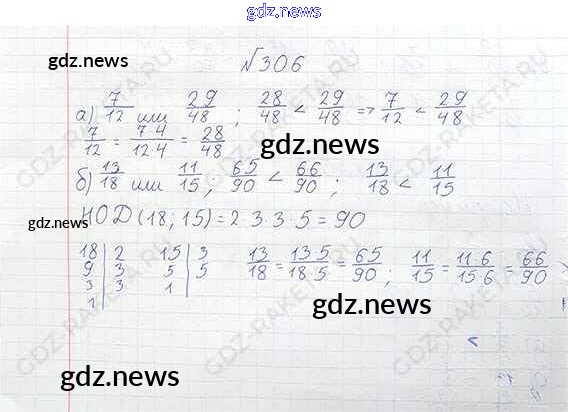 gdz.news
gdz.news
№306
а) 7/12 или 29/48 ; 28/48 < 29/48 => 7/12 < 29/48
7/12 = 7·4/12·4 = 28/48
gdz.news
б) 13/18 или 11/15 ; 65/90 < 66/90 ; 13/18 < 11/15
gdz.news
НОД (18; 15) = 2·3·3·5 = 90
18 | 2 15 | 3 13/18 = 13·5/18·5 = 65/90 ; 11/15 = 11·6/15·6 = 66/90
9 | 3 5 | 5
3 | 3 1
1
gdz.news
gdz.news
GDZ-RAKETA.RU